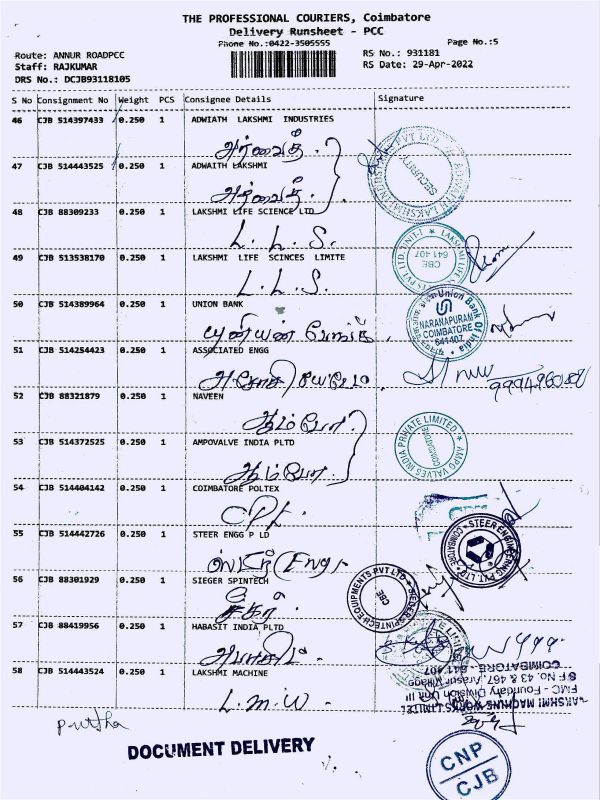 THE PROFESSIONAL COURIERS, Coimbatore
Delivery Runsheet - PCC
Phone No.:0422-3505555
Page No.:5
Route: ANNUR ROADPCC
RS No.: 931181
Staff: RAJKUMAR
RS Date: 29-Apr-2022
DRS No.: DCJB93118105
S No Consignment No Weight PCS Consignee Details Signature
46 CJB 514397433 0.250 1 ADWIATH LAKSHMI INDUSTRIES
அத்வைத்
47 CJB 514443525 0.250 1 ADWAITH LAKSHMI
அத்வைத்
SECURITY
48 CJB 88309233 0.250 1 LAKSHMI LIFE SCIENCE LTD
L. L. S.
49 CJB 513538170 0.250 1 LAKSHMI LIFE SCINCES LIMITE
L. L. S.
CBE
641 407
50 CJB 514389964 0.250 1 UNION BANK
யூனியன் பேங்க்
Union Bank Of India
NARANAPURAM
COIMBATORE
641407
51 CJB 514254423 0.250 1 ASSOCIATED ENGG
52 CJB 88321879 0.250 1 NAVEEN
ஆம்போ
53 CJB 514372525 0.250 1 AMPOVALVE INDIA PLTD
ஆம்போ
AMPO VALVES INDIA PRIVATE LIMITED
COIMBATORE
54 CJB 514404142 0.250 1 COIMBATORE POLTEX
CPL
55 CJB 514442726 0.250 1 STEER ENGG P LD
STEER ENGINEERING PVT. LTD
COIMBATORE
56 CJB 88301929 0.250 1 SIEGER SPINTECH
SIEGER SPINTECH EQUIPMENTS PVT LTD
CBE
57 CJB 88419956 0.250 1 HABASIT INDIA PLTD
58 CJB 514443524 0.250 1 LAKSHMI MACHINE
L. M. W.
LAKSHMI MACHINE WORKS LIMITED
FMC - Foundry Division Unit III
SF No. 43 & 467, Arasur Village
COIMBATORE - 641 407
DOCUMENT DELIVERY
CNP
CJB